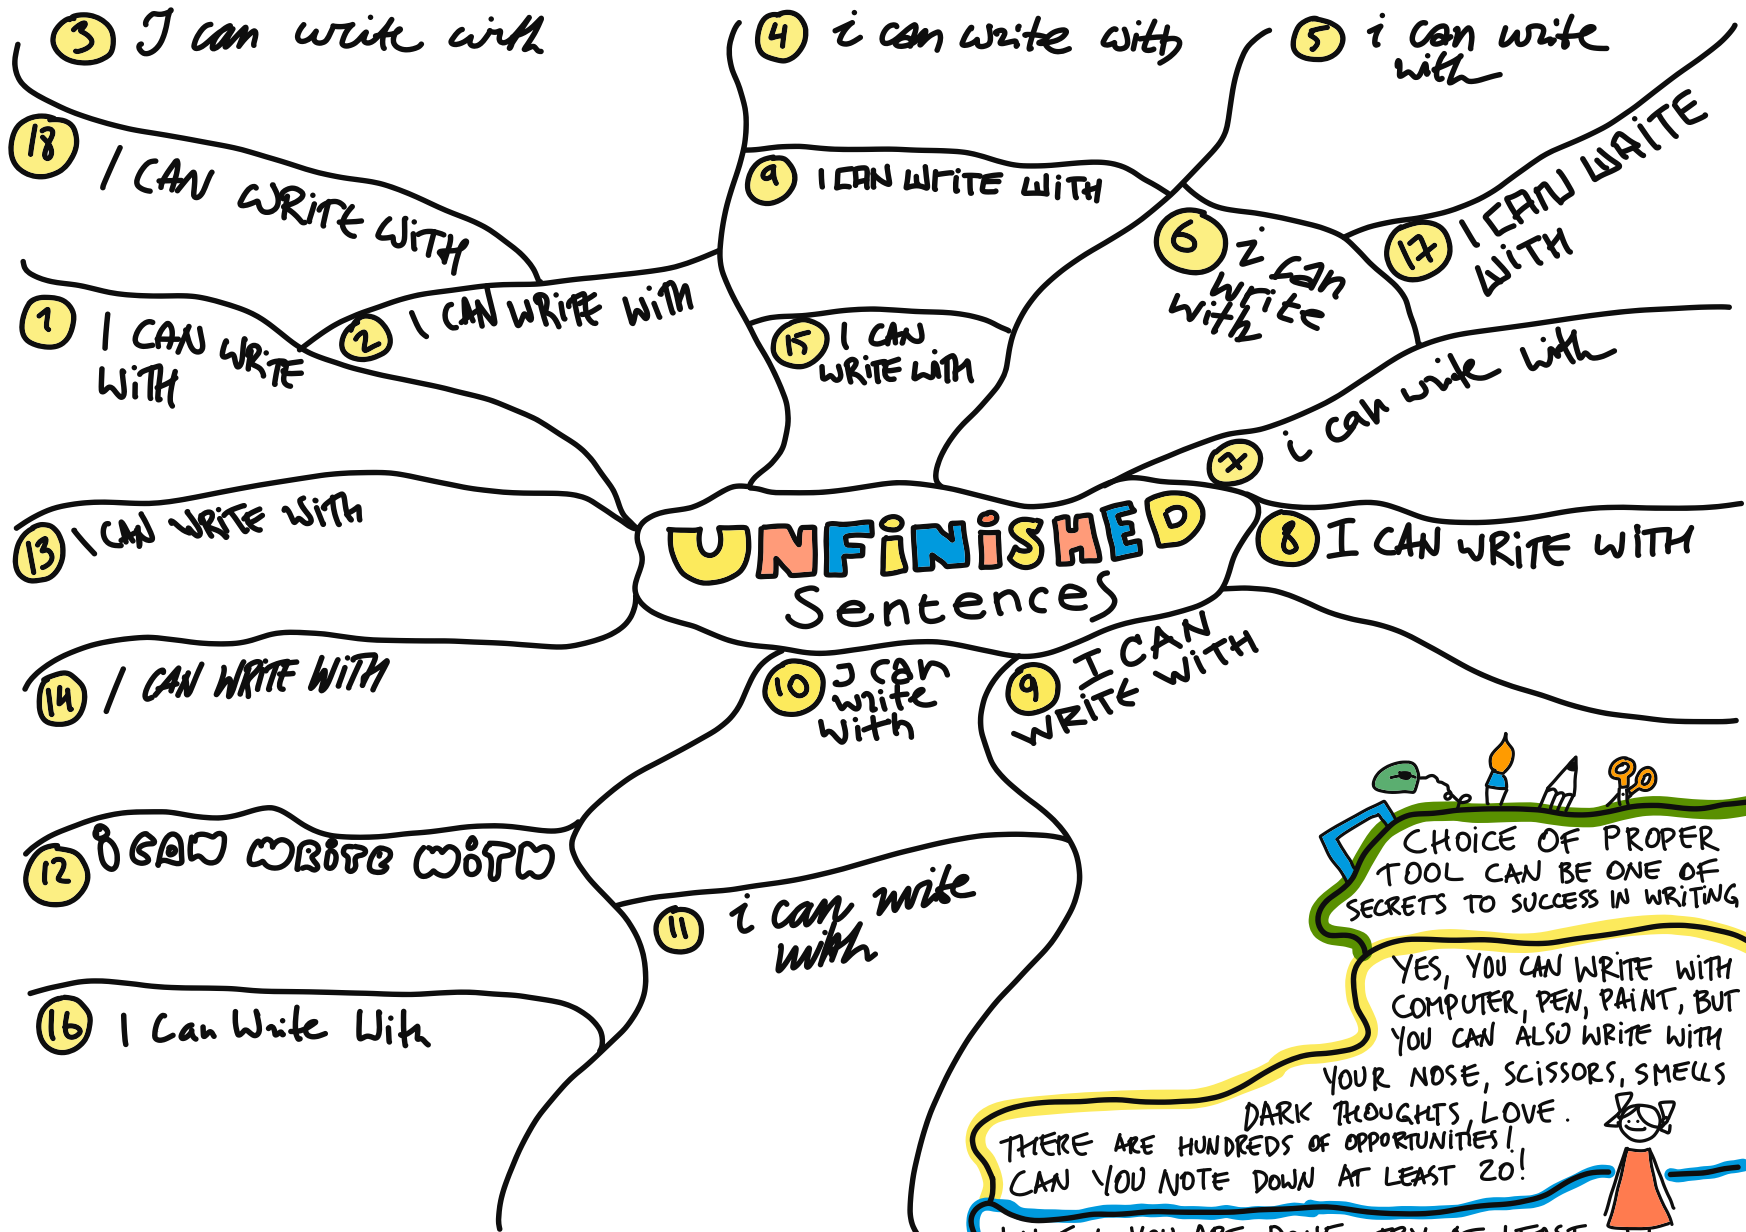 3 I can write with
4 i can write with
5 i can write
with
18 I CAN WRITE WITH
9 I CAN WRITE WITH
6 i can
write
with
17 I CAN WRITE
WITH
1 I CAN WRITE
WITH
2 I CAN WRITE WITH
15 I CAN
WRITE WITH
7 i can write with
13 I CAN WRITE WITH
UNFINISHED
Sentences
8 I CAN WRITE WITH
14 I CAN WRITE WITH
10 I can
write
with
9 I CAN
WRITE WITH
12 I CAN WRITE WITH
11 i can write
with
16 I Can Write With
CHOICE OF PROPER
TOOL CAN BE ONE OF
SECRETS TO SUCCESS IN WRITING
YES, YOU CAN WRITE WITH
COMPUTER, PEN, PAINT, BUT
YOU CAN ALSO WRITE WITH
YOUR NOSE, SCISSORS, SMELLS
DARK THOUGHTS, LOVE.
THERE ARE HUNDREDS OF OPPORTUNITIES!
CAN YOU NOTE DOWN AT LEAST 20!
YOU ARE DONE, TRY AT LEAST